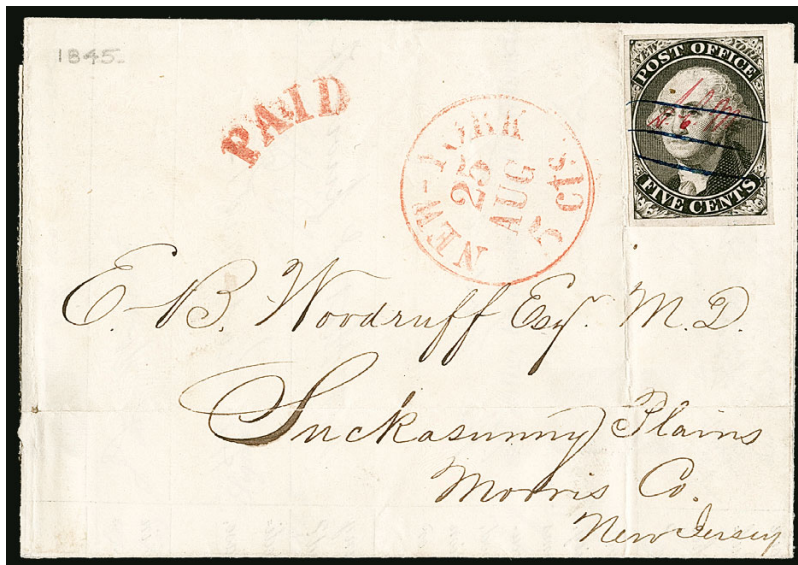 1845-
PAID
NEW-YORK
25
AUG
5 cts
NEW YORK
POST OFFICE
FIVE CENTS
E. B. Woodruff Esqr. M. D.
Suckasunny Plains
Morris Co.
New Jersey